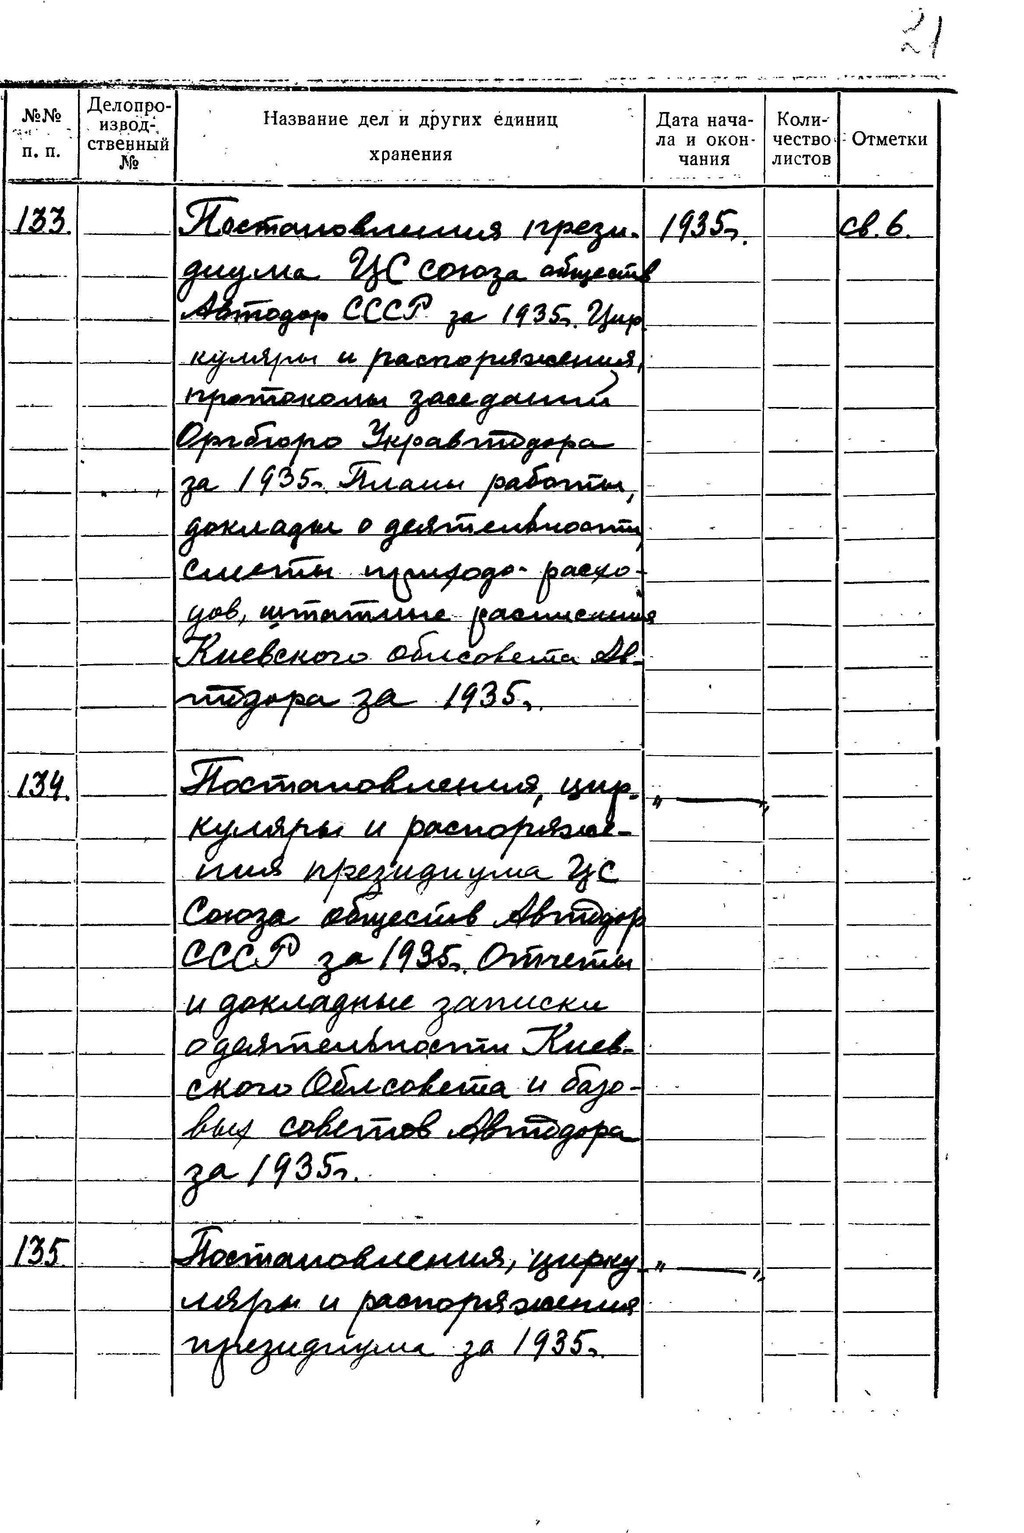 21
№№ п. п.
Делопро-
извод-
ственный
№
Название дел и других единиц
хранения
Дата нача-
ла и окон-
чания
Коли-
чество
листов
Отметки
133. Постановления прези- 1935г. св. 6.
диума ЦС союза обществ
Автодор СССР за 1935г. Цир
куляры и распоряжения,
протоколы заседаний
Оргбюро Укравтодора
за 1935г. Планы работы,
доклады о деятельности,
сметы приходо-расхо-
дов, штатные расписания
Киевского облсовета Ав-
тодора за 1935г.
134. Постановления, цир- „ — „
куляры и распоряже-
ния президиума ЦС
Союза обществ Автодор
СССР за 1935г. Отчеты
и докладные записки
о деятельности Киев-
ского Облсовета и базо-
вых советов Автодора
за 1935г.
135. Постановления, цирку- „ — „
ляры и распоряжения
президиума за 1935г.